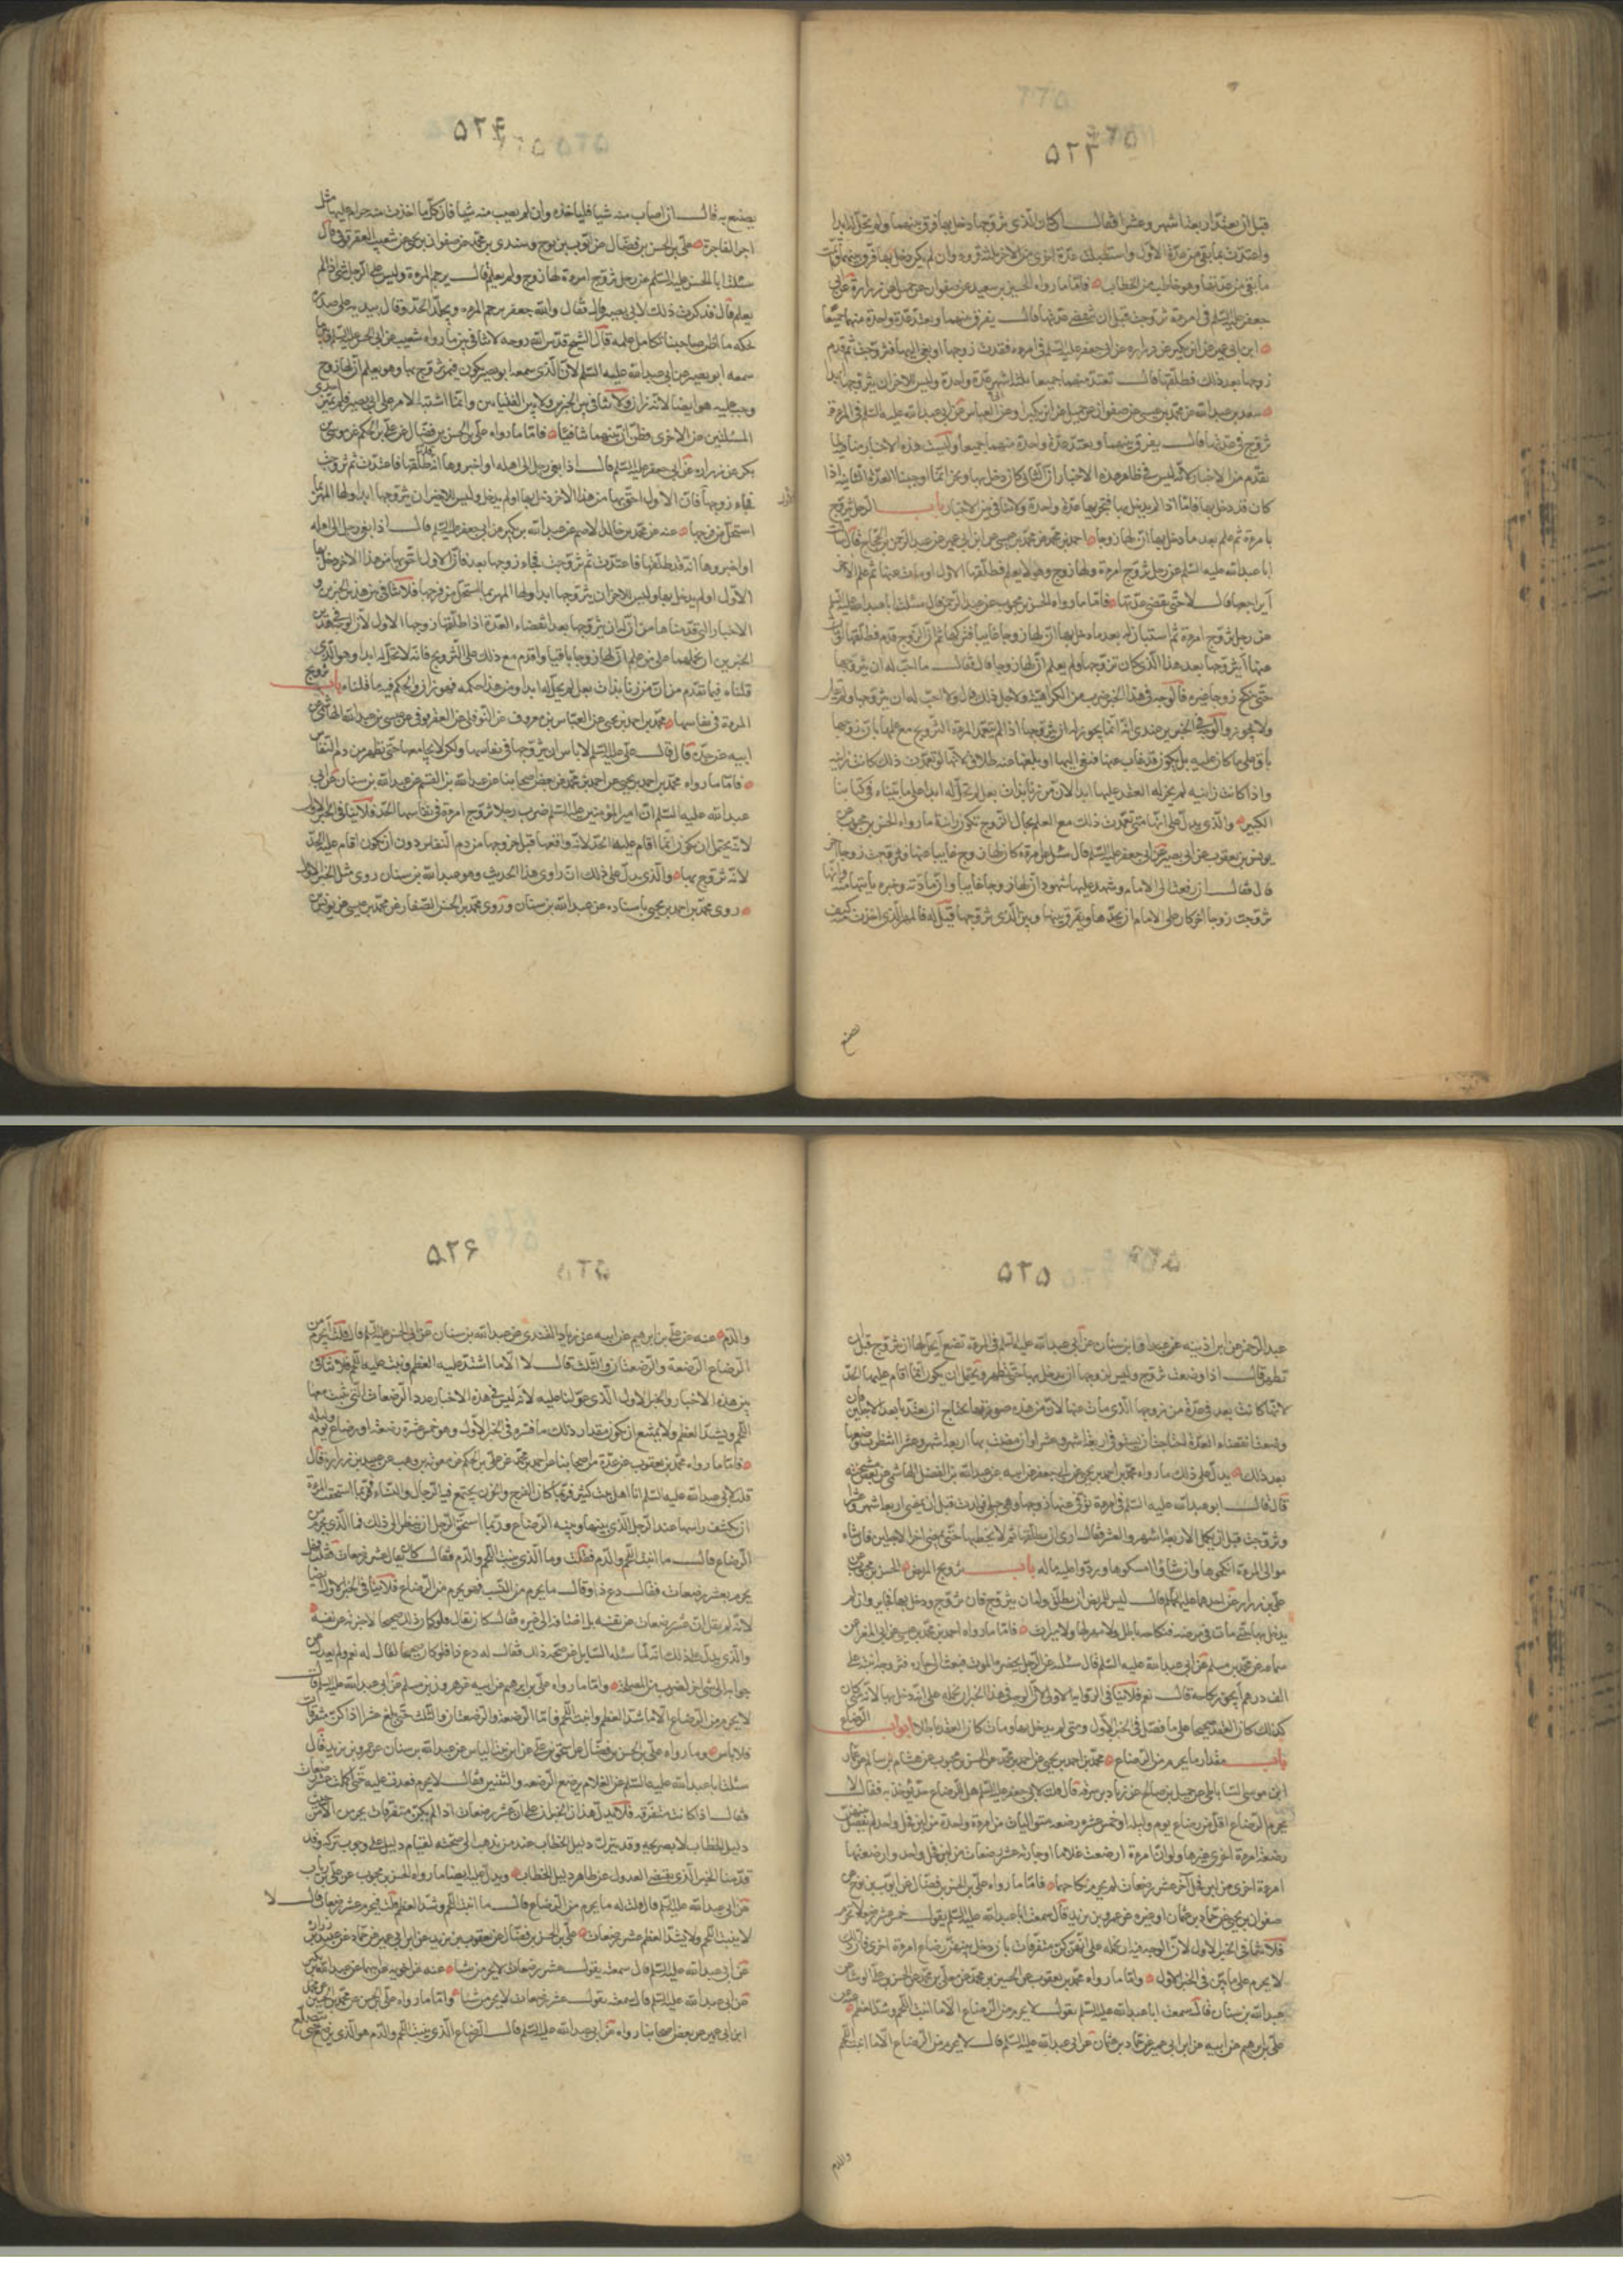 ۵۲۳
قبل ان تعتد اربعة اشهر وعشرا فقال ان كان الذى تزوجها دخل بها فرق بينهما ولم تحل له ابدا
واعتدت بما بقى من عدة الاول واستقبلت عدة اخرى من الاخر ثلثة قروء وان لم يكن دخل بها فرق بينهما واتمت
ما بقى من عدتها وهو خاطب من الخطاب فاما ما رواه الحسين بن سعيد عن صفوان عن جميل عن زرارة عن ابى
جعفر عليه السلم فى امرءة تزوجت قبل ان تنقضى عدتها قال يفرق بينهما وتعتد عدة واحدة منهما جميعا
ابن ابى عمير عن ابن بكير عن زرارة عن ابى جعفر عليه السلم فى امرءة فقدت زوجها او نعى اليها فتزوجت ثم قدم
زوجها بعد ذلك فطلقها قال تعتد منهما جميعا ثلثة اشهر عدة واحدة وليس للاخر ان يتزوجها ابدا
سعد بن عبد الله عن محمد بن عيسى عن صفوان عن جميل عن ابن بكير او عن ابى العباس عن ابى عبد الله عليه السلم فى المرءة
تزوج فى عدتها قال يفرق بينهما وتعتد عدة واحدة منهما جميعا وليست هذه الاخبار منافية لما
تقدم من الاخبار لانه ليس فى ظاهر هذه الاخبار ان الثانى كان دخل بها ونحن انما اوجبنا العدة الثانية اذا
كان قد دخل بها فاما اذا لم يدخل بها فتجزيها عدة واحدة ولا تنافى بين الاخبار باب الرجل يتزوج
بامرءة ثم علم بعد ما دخل بها ان لها زوجا احمد بن محمد عن محمد بن عيسى عن ابن ابى عمير عن عبد الرحمن بن الحجاج قال سالت
ابا عبد الله عليه السلم عن رجل تزوج امرءة ولها زوج وهو لا يعلم فطلقها الاول او مات عنها ثم علم الاخر
ايراجعها قال لا حتى تنقضى عدتها فاما ما رواه الحسن بن محبوب عن عبد الرحمن قال سئلت ابا عبد الله عليه السلم
عن رجل تزوج امرءة ثم استبان له بعد ما دخل بها ان لها زوجا غايبا فتركها ثم ان الزوج قدم فطلقها او مات
عنها ايتزوجها بعد هذا الذى كان تزوجها ولم يعلم ان لها زوجا قال فقال ما احب له ان يتزوجها
حتى تنكح زوجا غيره فالوجه فى هذا الخبر ضرب من الكراهية ولاجل ذلك قال ولا احب له ان يتزوجها
بافق على ما كان عليه بل يكون قد غاب عنها فنعى اليها او بلغها عنه طلاق لانها لو تعمدت ذلك كانت زانية
واذا كانت زانية لم يجز له العقد عليها ابدا لان من زنا بذات بعل لم تحل له ابدا على ما بيناه فى كتابنا
الكبير والذى يدل على انها متى تعمدت ذلك مع العلم بحال الزوج تكون زانية ما رواه الحسن بن محبوب عن
يونس بن يعقوب عن ابى بصير عن ابى جعفر عليه السلم قال سئل عن امرءة كان لها زوج غايبا عنها فتزوجت زوجا اخر
قال فقال ان رفعت الى الامام وشهد عليها شهود ان لها زوجا غايبا وان مادته وخبره ياتيها منه وانها
تزوجت زوجا اخر كان على الامام ان يحدها ويفرق بينها وبين الذى تزوجها قيل له فالمهر الذى اخذت منه كيف
يصنع
۵۲۴
يصنع به قال ان اصاب منه شيا فلياخذه وان لم يصب منه شيا فان كل ما اخذت منه حرام عليها مثل
اجر الفاجرة على بن الحسن بن فضال عن ايوب بن نوح وسندى بن محمد عن صفوان بن يحيى عن شعيب العقرقوفى قال
سئلت ابا الحسن عليه السلم عن رجل تزوج امرءة لها زوج ولم يعلم قال ترجم المرءة وليس على الرجل شئ اذا لم
يعلم قال فذكرت ذلك لابى بصير قال فقال والله جعفر ترجم المرءة ويجلد الحد وقال بيده على صدره
يحكه ما اظن صاحبنا تكامل علمه قال الشيخ قدس الله روحه لا تنافى بين ما رواه شعيب عن ابى الحسن عليه السلم وما
سمعه ابو بصير من ابى عبد الله عليه السلم لان الذى سمعه ابو بصير يكون فيمن تزوج بها وهو يعلم ان لها زوج
المسئلتين من الاخرى فظن ان بينهما تنافيا فاما ما رواه على بن الحسن بن فضال عن على بن الحكم عن موسى بن
بكر عن زرارة عن ابى جعفر عليه السلم قال اذا نعى رجل الى اهله او اخبروها انه طلقها فاعتدت ثم تزوجت
فجاء زوجها فان الاول احق بها من هذا الاخر دخل بها او لم يدخل وليس للاخر ان يتزوجها ابدا ولها المهر بما
استحل من فرجها عنه عن محمد بن خالد الاصم عن عبد الله بن بكير عن ابى جعفر عليه السلم قال اذا نعى رجل الى اهله
او اخبروها انه قد طلقها فاعتدت ثم تزوجت فجاء زوجها بعد فان الاول احق بها من هذا الاخر دخل بها
الاول او لم يدخل بها وليس للاخر ان يتزوجها ابدا ولها المهر بما استحل من فرجها فلا تنافى بين هذين الخبرين و
الاخبار التى قدمناها من ان له ان يتزوجها بعد انقضاء العدة اذا طلقها زوجها الاول لان الوجه فى هذين
الخبرين ان نحملهما على من علم ان لها زوجا باقيا واقدم مع ذلك على التزويج فانه لا تحل له ابدا وهو الذى
قلناه فيما تقدم من ان من زنا بذات بعل لم تحل له ابدا ومن هذا حكمه فهو زان والحكم فيه ما قلناه باب تزويج
المرءة فى نفاسها محمد بن احمد بن يحيى عن العباس بن معروف عن النوفلى عن اليعقوبى عن عيسى بن عبد الله الهاشمى عن
ابيه عن جده قال قال على عليه السلم لا باس ان يتزوجها فى نفاسها ولكن لا يجامعها حتى تطهر من دم النفاس
فاما ما رواه محمد بن احمد بن يحيى عن احمد بن محمد عن بعض اصحابنا عن عبد الله بن القسم عن عبد الله بن سنان عن ابى
عبد الله عليه السلم ان امير المؤمنين عليه السلم ضرب رجلا تزوج امرءة فى نفاسها الحد فلا ينافى الخبر الاول
لانه يحتمل ان يكون انما اقام عليه الحد لانه واقعها قبل خروجها من دم النفاس دون ان يكون اقام عليه الحد
لانه تزوج بها والذى يدل على ذلك ان راوى هذا الحديث وهو عبد الله بن سنان روى مثل الخبر الاول
روى محمد بن احمد بن يحيى باسناده عن عبد الله بن سنان وروى محمد بن الحسن الصفار عن محمد بن عيسى عن يونس عن
۵۲۵
تطهر قال اذا وضعت تزوج وليس لزوجها ان يدخل بها حتى تطهر ويحتمل ان يكون انما اقام عليها الحد
لانها كانت بعد فى عدة من زوجها الذى مات عنها لان من هذه صورتها يحتاج ان تعتد بابعد الاجلين فان
بعد ذلك يدل على ذلك ما رواه محمد بن احمد بن يحيى عن ابى جعفر عن ابيه عن عبد الله بن الفضل الهاشمى عن بعض مشيخته
قال قال ابو عبد الله عليه السلم فى امرءة توفى عنها زوجها وهى حبلى فولدت قبل ان تمضى اربعة اشهر وعشرا
وتزوجت قبل ان تكمل الاربعة اشهر والعشر فقال ارى ان يطلقها ثم لا يخطبها حتى يمضى اخر الاجلين فان شاء
موالى المرءة انكحوها وان شاؤا امسكوها وردوا عليه ماله باب تزويج المريض الحسن بن محبوب عن
على بن رئاب عن زرارة عن احدهما عليهما السلم قال ليس للمريض ان يطلق وله ان يتزوج فان تزوج ودخل بها فجايز وان لم
يدخل بها حتى مات فى مرضه فنكاحه باطل ولا مهر لها ولا ميراث فاما ما رواه احمد بن محمد بن عيسى عن ابى المغرا عن
سماعة عن محمد بن مسلم عن ابى عبد الله عليه السلم قال سئلته عن الرجل يحضره الموت فيبعث الى جاره فتزوجه ابنته على
الف درهم ايجوز نكاحه قال نعم فلا ينافى الرواية الاولى لان الوجه فى هذا الخبر ان نحمله على انه دخل بها لانه متى كان
كذلك كان العقد صحيحا على ما فصل فى الخبر الاول ومتى لم يدخل بها ومات كان العقد باطلا ابواب الرضاع
باب مقدار ما يحرم من الرضاع محمد بن احمد بن يحيى عن احمد بن محمد عن الحسن بن محبوب عن هشام بن سالم عن عمار
ابن موسى الساباطى عن جميل بن صالح عن زياد بن سوقة قال قلت لابى جعفر عليه السلم هل للرضاع حد يؤخذ به فقال لا
يحرم الرضاع اقل من رضاع يوم وليلة او خمس عشرة رضعة متواليات من امرءة واحدة من لبن فحل واحد لم يفصل بينها
رضعة امرءة اخرى غيرها ولو ان امرءة ارضعت غلاما او جارية عشر رضعات من لبن فحل واحد وارضعتهما
امرءة اخرى من لبن فحل آخر عشر رضعات لم يحرم نكاحهما فاما ما رواه على بن الحسن بن فضال عن ايوب بن نوح عن
صفوان بن يحيى عن حماد بن عثمان او غيره عن عمرو بن يزيد قال سمعت ابا عبد الله عليه السلم يقول خمس عشرة رضعة لا تحرم
فلا تنافى الخبر الاول لان الوجه فيه ان نحمله على انهن كن متفرقات بان دخل بينهن رضاع امرءة اخرى فان ذلك
لا يحرم على ما بين فى الخبر الاول واما ما رواه محمد بن يعقوب عن الحسين بن محمد عن معلى بن محمد عن الحسن بن على الوشا عن
عبد الله بن سنان قال سمعت ابا عبد الله عليه السلم يقول لا يحرم من الرضاع الا ما انبت اللحم وشد العظم عنه عن
على بن ابرهيم عن ابيه عن ابن ابى عمير عن حماد بن عثمان عن ابى عبد الله عليه السلم قال لا يحرم من الرضاع الا ما انبت اللحم
والدم
۵۲۶
والدم عنه عن على بن ابرهيم عن ابيه عن زياد القندى عن عبد الله بن سنان عن ابى الحسن عليه السلم قال قلت يحرم من
الرضاع الرضعة والرضعتان والثلث قال لا الا ما اشتد عليه العظم ونبت عليه اللحم فلا تنافى
بين هذه الاخبار والخبر الاول الذى عولنا عليه لانه ليس فى هذه الاخبار عدد الرضعات التى ينبت معها
اللحم ويشد العظم ولا يمتنع ان يكون مقدار ذلك ما فسره فى الخبر الاول وهو خمس عشرة رضعة او رضاع يوم وليلة
فاما ما رواه محمد بن يعقوب عن عدة من اصحابنا عن احمد بن محمد عن على بن الحكم عن معوية بن وهب عن عبيد بن زرارة قال
قلت لابى عبد الله عليه السلم انا اهل بيت كثير فربما كان الفرح والحزن يجتمع فيه الرجال والنساء فربما استحيت المرءة
ان تكشف راسها عند الرجل الذى بينها وبينه الرضاع وربما استحى الرجل ان ينظر الى ذلك فما الذى يحرم من
الرضاع قال ما انبت اللحم والدم فقلت وما الذى ينبت اللحم والدم فقال كان يقال عشر رضعات فقلت فهل
يحرم بعشر رضعات فقال دع ذا وقال ما يحرم من النسب فهو يحرم من الرضاع فلا ينافى الخبر الاول ايضا
لانه لم يقل ان عشر رضعات عن نفسه بل اضافه الى غيره فقال كان يقال فلو كان ذلك صحيحا لاخبر به عن نفسه
والذى يدل على ذلك انه لما سئله السايل عن صحة ذلك فقال له دع ذا فلو كان صحيحا لقال له نعم ولم يعدل عن
جوابه الى شئ اخر لضرب من المصلحة واما ما رواه على بن ابرهيم عن ابيه عن هرون بن مسلم عن ابى عبد الله عليه السلم قال
لا يحرم من الرضاع الا ما شد العظم وانبت اللحم فاما الرضعة والرضعتان والثلث حتى بلغ عشرا اذا كن متفرقات
فلا باس وما رواه على بن الحسن بن فضال عن اخويه عن ابن بنت الياس عن عبد الله بن سنان عن عمرو بن يزيد قال
سئلت ابا عبد الله عليه السلم عن الغلام يرضع الرضعة والثنتين فقال لا يحرم فعددت عليه حتى اكملت عشر رضعات
فقال اذا كانت متفرقة فلا يدل هذان الخبران على ان عشر رضعات اذا لم يكن متفرقات يحرمن الا من حيث
دليل الخطاب لا بصريحه وقد يترك دليل الخطاب عند من ذهب الى صحته لقيام دليل على وجوب تركه وقد
قدمنا الخبر الذى يقتضى العدول عن ظاهر دليل الخطاب ويدل عليه ايضا ما رواه الحسن بن محبوب عن على بن رئاب
عن ابى عبد الله عليه السلم قال قلت له ما يحرم من الرضاع قال ما انبت اللحم وشد العظم قلت فيحرم عشر رضعات قال لا
لا ينبت اللحم ولا يشد العظم عشر رضعات على بن الحسن بن فضال عن يعقوب بن يزيد عن ابن ابى عمير عن حماد عن عبيد بن زرارة
عن ابى عبد الله عليه السلم قال سمعته يقول عشر رضعات لا يحرمن شيا عنه عن اخويه عن ابيهما عن عبد الله بن بكير
عن ابى عبد الله عليه السلم قال سمعته يقول عشر رضعات لا يحرمن شيا واما ما رواه على بن الحسن عن محمد بن الحسين عن محمد بن
ابن ابى عمير عن بعض اصحابنا رواه عن ابى عبد الله عليه السلم قال الرضاع الذى ينبت اللحم والدم هو الذى يرضع حتى